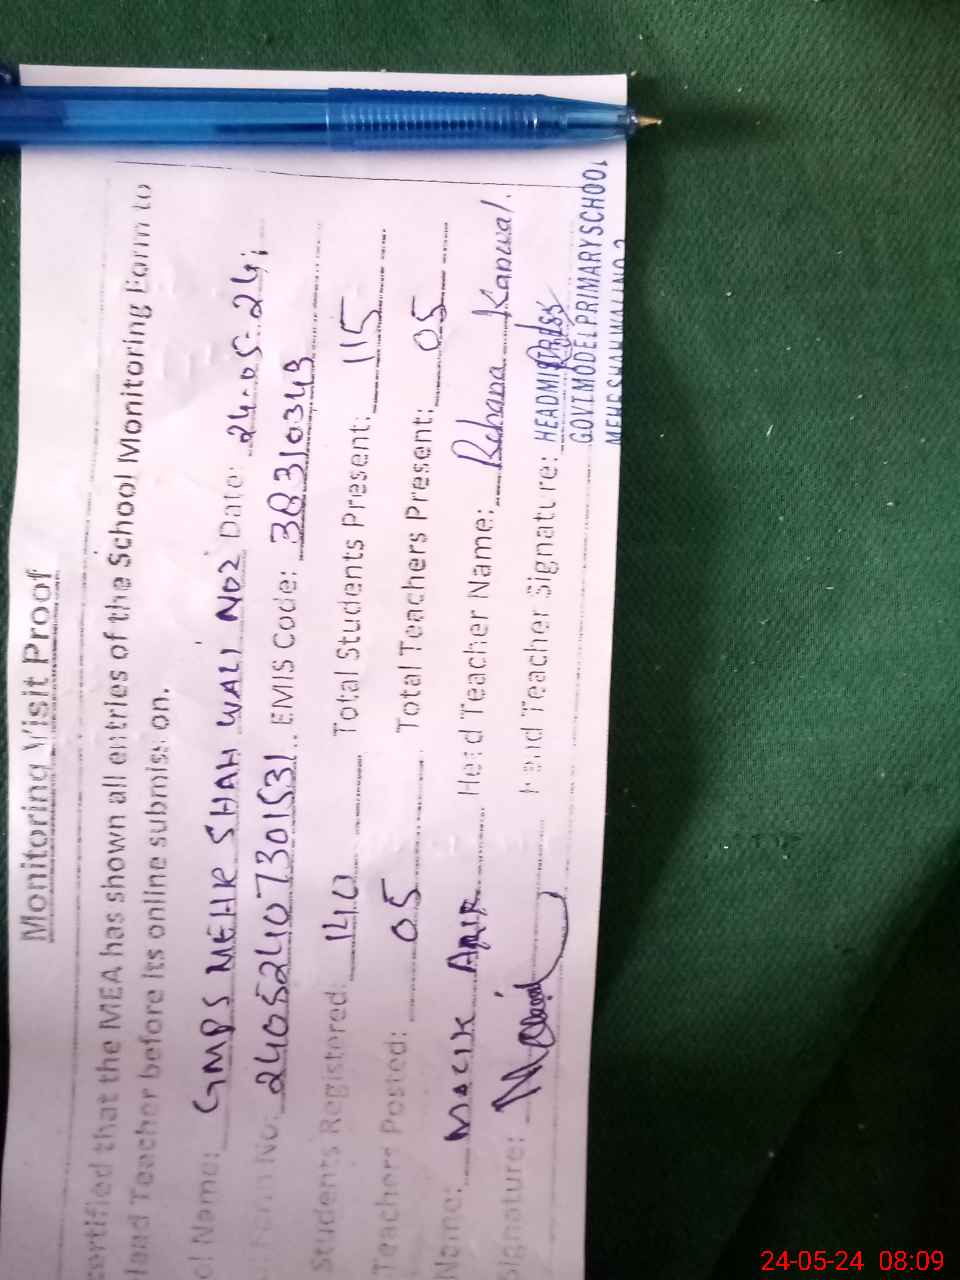 Monitoring Visit Proof
certified that the MEA has shown all entries of the School Monitoring Form to
Head Teacher before its online submission.
ol Name: GMPS MEHR SHAH WALI NO2 Date: 24-05-24
No: 24052407301531 EMIS Code: 38310349
Students Registered: 140 Total Students Present: 115
Teachers Posted: 05 Total Teachers Present: 05
Name: Head Teacher Name: Rehana Kanwal.
Signature: Head Teacher Signature:
HEADMITRESS
GOVT MODEL PRIMARY SCHOOL
MEHR SHAH WALI NO 2
24-05-24 08:09